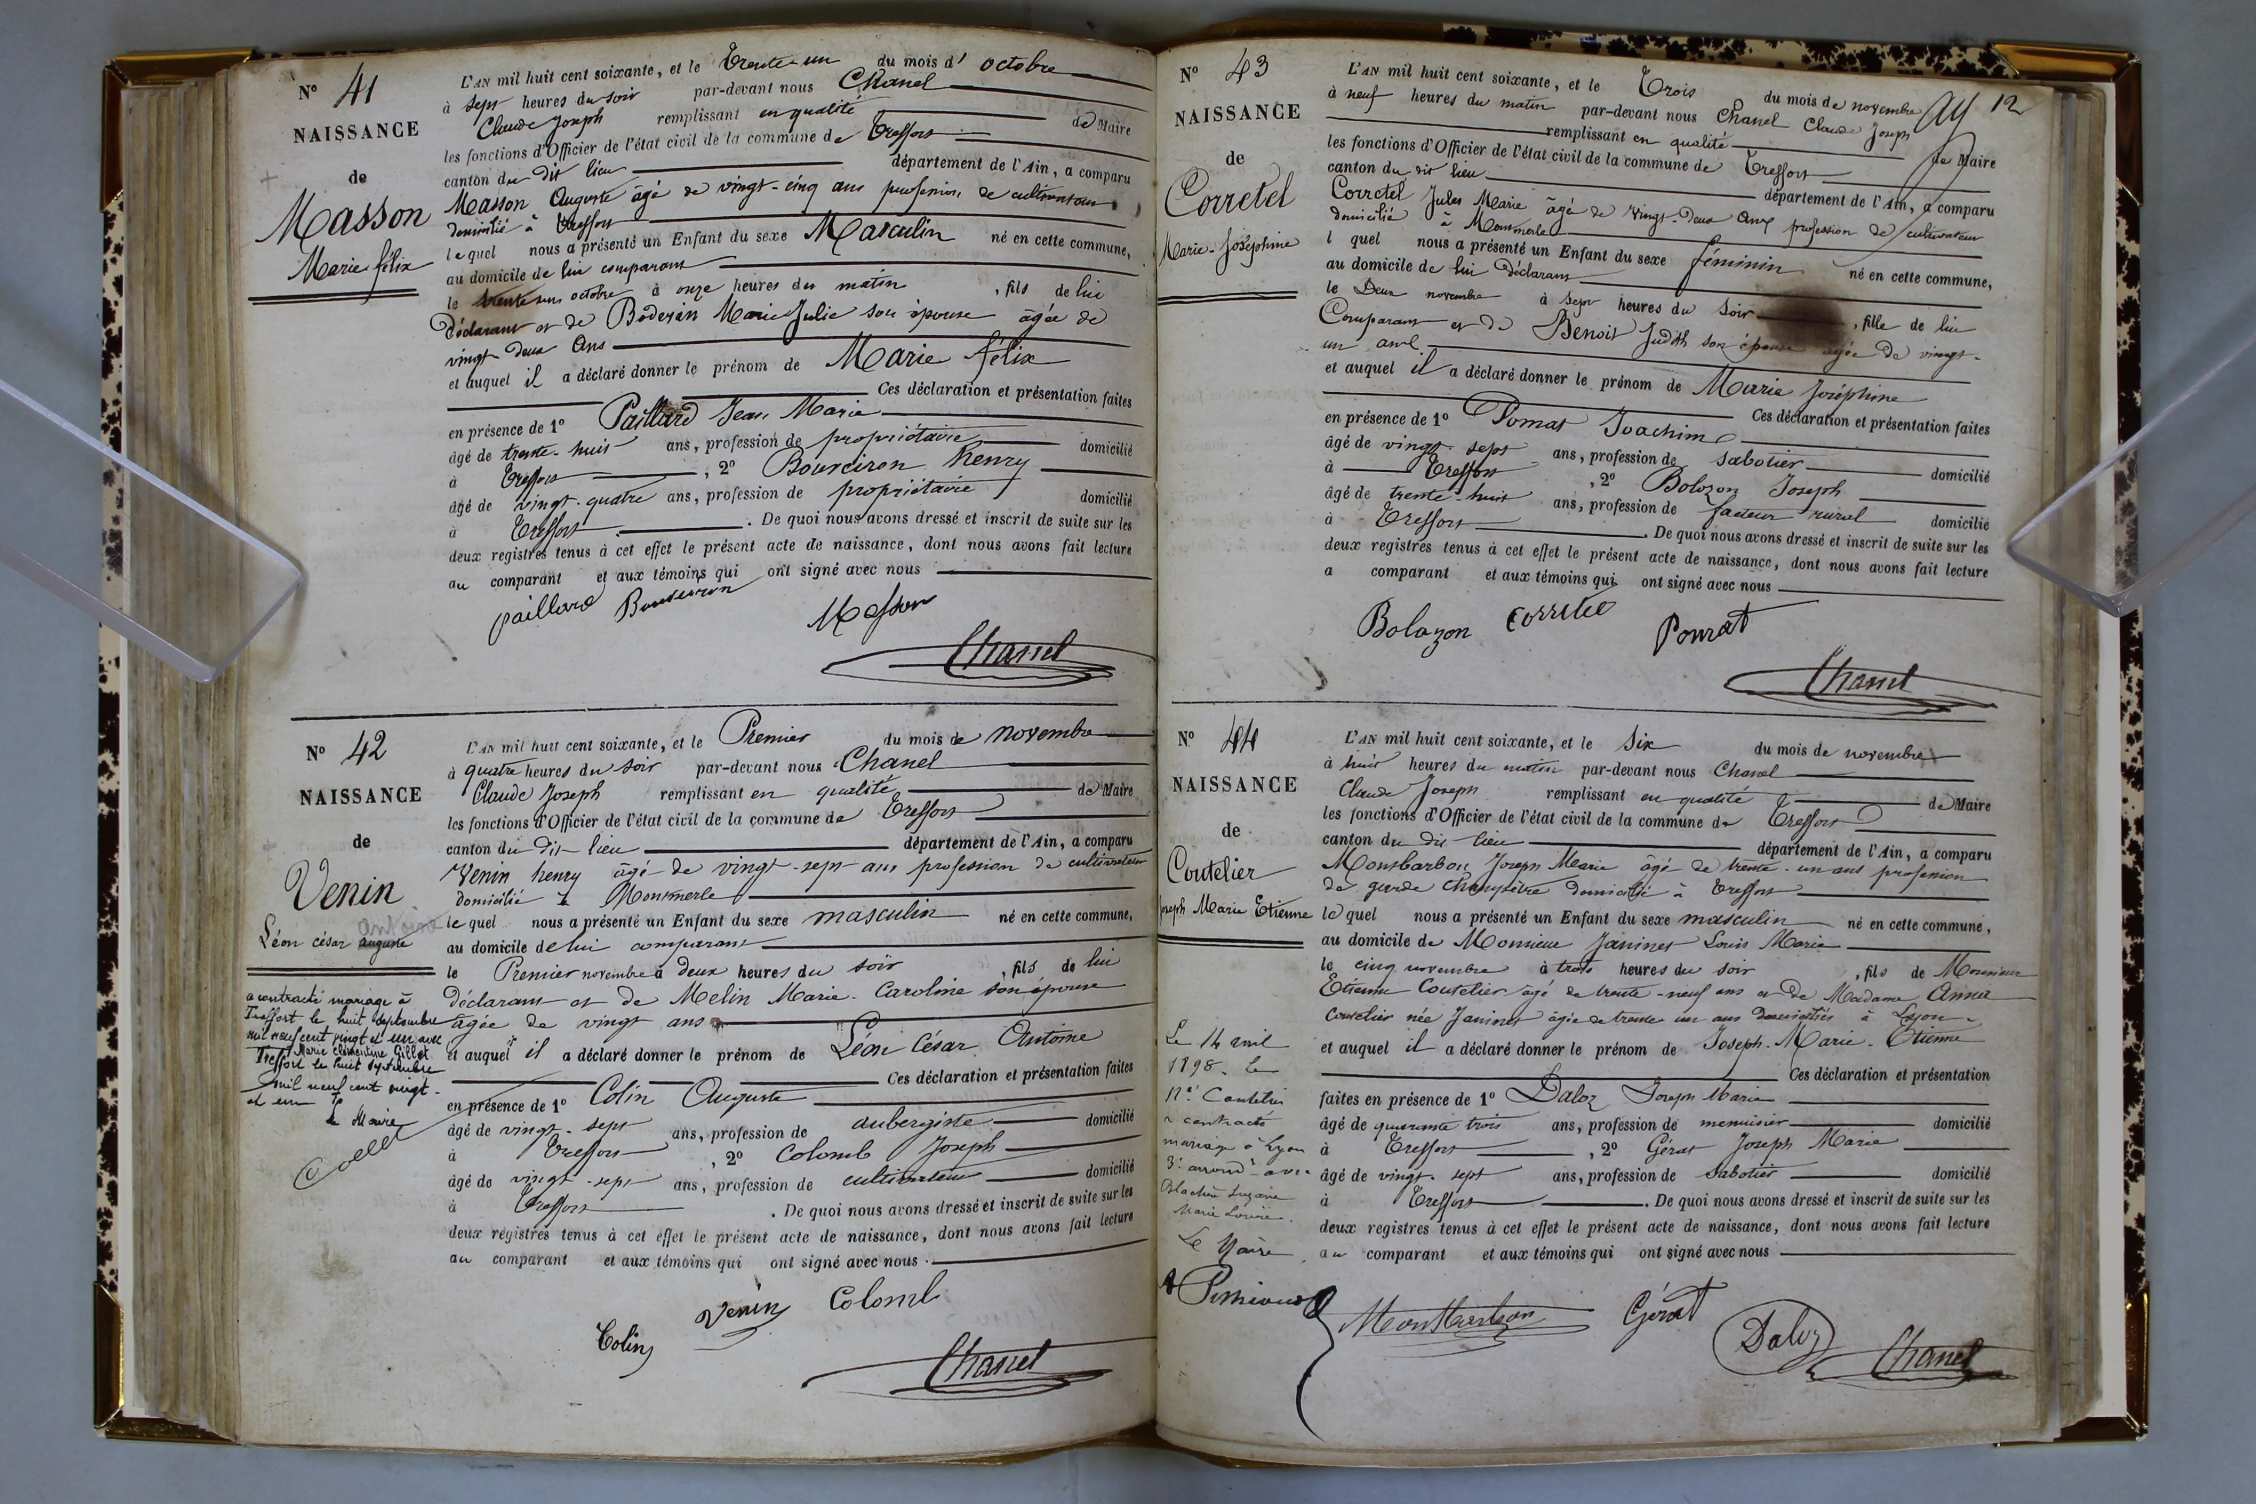 N° 41
NAISSANCE
de
Masson
Marie félix
L'AN mil huit cent soixante, et le Trente-un du mois d'octobre
à sept heures du soir par-devant nous Chanel
Claude Joseph remplissant en qualité de Maire
les fonctions d'Officier de l'état civil de la commune de Treffort
canton du dit lieu département de l'Ain, a comparu
Masson Auguste âgé de vingt-cinq ans profession de cultivateur
domicilié à Treffort
lequel nous a présenté un Enfant du sexe Masculin né en cette commune,
au domicile de lui comparant
le trente un octobre à onze heures du matin, fils de lui
Déclarant et de Marie Julie son épouse âgée de
vingt-deux ans
et auquel il a déclaré donner le prénom de Marie félix
Ces déclaration et présentation faites
en présence de 1° Paillard Jean Marie
âgé de trente-huit ans, profession de propriétaire domicilié
à Treffort, 2° Bourciron henry
âgé de vingt-quatre ans, profession de propriétaire domicilié
à Treffort. De quoi nous avons dressé et inscrit de suite sur les
deux registres tenus à cet effet le présent acte de naissance, dont nous avons fait lecture
au comparant et aux témoins qui ont signé avec nous
paillard Bourciron Masson
Chanel
N° 42
NAISSANCE
de
Venin
Léon césar auguste
antoine
a contracté mariage à
Treffort le huit septembre
mil neuf cent vingt et un avec
Marie Clémentine Gillet
Treffort le huit septembre
mil neuf cent vingt-
et un
Le Maire
L'AN mil huit cent soixante, et le Premier du mois de novembre
à quatre heures du soir par-devant nous Chanel
Claude Joseph remplissant en qualité de Maire
les fonctions d'Officier de l'état civil de la commune de Treffort
canton du dit lieu département de l'Ain, a comparu
Venin henry âgé de vingt-sept ans profession de cultivateur
domicilié à Montmerle
lequel nous a présenté un Enfant du sexe masculin né en cette commune,
au domicile de lui comparant
le Premier novembre à deux heures du soir, fils de lui
déclarant et de Melin Marie-Caroline son épouse
âgée de vingt ans
et auquel il a déclaré donner le prénom de Léon César Antoine
Ces déclaration et présentation faites
en présence de 1° Colin Auguste
âgé de vingt-sept ans, profession de aubergiste domicilié
à Treffort, 2° Colomb Joseph
âgé de vingt-sept ans, profession de cultivateur domicilié
à Treffort. De quoi nous avons dressé et inscrit de suite sur les
deux registres tenus à cet effet le présent acte de naissance, dont nous avons fait lecture
au comparant et aux témoins qui ont signé avec nous.
Venin Colomb
Colin
Chanel
12
N° 43
NAISSANCE
de
Corretel
Marie-Joséphine
L'AN mil huit cent soixante, et le Trois du mois de novembre
à neuf heures du matin par-devant nous Chanel Claude Joseph
remplissant en qualité de Maire
les fonctions d'Officier de l'état civil de la commune de Treffort
canton du dit lieu département de l'Ain, a comparu
Corretel Jules Marie âgé de vingt-deux ans profession de cultivateur
domicilié à Montmerle
l quel nous a présenté un Enfant du sexe féminin né en cette commune,
au domicile de lui Déclarant
le Deux novembre à sept heures du soir, fille de lui
Comparant et de Benoit Judith son épouse agée de vingt-
un ans.
et auquel il a déclaré donner le prénom de Marie Joséphine
Ces déclaration et présentation faites
en présence de 1° Pomat Joachim
âgé de vingt-sept ans, profession de sabotier domicilié
à Treffort, 2° Bolozon Joseph
âgé de trente-huit ans, profession de facteur rural domicilié
à Treffort. De quoi nous avons dressé et inscrit de suite sur les
deux registres tenus à cet effet le présent acte de naissance, dont nous avons fait lecture
a comparant et aux témoins qui ont signé avec nous
Bolozon Corretel Pomat
Chanel
N° 44
NAISSANCE
de
Coutelier
Joseph Marie Etienne
Le 14 avril
1898. Le
Né Coutelier
a contracté
mariage à Lyon
3e arrond.t avec
Suzanne
Marie Louise.
Le Maire
L'AN mil huit cent soixante, et le six du mois de novembre
à huit heures du matin par-devant nous Chanel
Claude Joseph remplissant en qualité de Maire
les fonctions d'Officier de l'état civil de la commune de Treffort
canton du dit lieu département de l'Ain, a comparu
Montbarbon Joseph Marie âgé de trente-un ans profession
de garde champêtre domicilié à Treffort
lequel nous a présenté un Enfant du sexe masculin né en cette commune,
au domicile de Monsieur Janinet Louis Marie
le cinq novembre à trois heures du soir, fils de Monsieur
Etienne Coutelier âgé de trente-neuf ans et de Madame Anna
Coutelier née Janinet âgée de trente un ans domiciliés à Lyon.
et auquel il a déclaré donner le prénom de Joseph-Marie-Etienne
Ces déclaration et présentation
faites en présence de 1° Daloz Joseph Marie
âgé de quarante trois ans, profession de menuisier domicilié
à Treffort, 2° Gérat Joseph Marie
âgé de vingt-sept ans, profession de sabotier domicilié
à Treffort. De quoi nous avons dressé et inscrit de suite sur les
deux registres tenus à cet effet le présent acte de naissance, dont nous avons fait lecture
au comparant et aux témoins qui ont signé avec nous
Montbarbon Gérat
Daloz Chanel